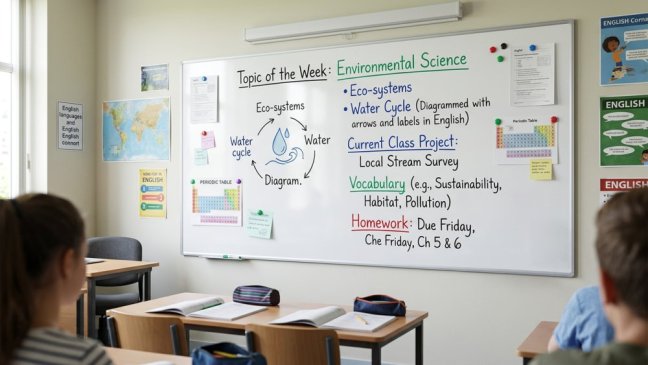 Topic of the Week: Environmental Science
Eco-systems
Water
cycle
Water
Diagram.
• Eco-systems
• Water Cycle (Diagrammed with
arrows and labels in English)
Current Class Project:
Local Stream Survey
Vocabulary (e.g., Sustainability,
Habitat, Pollution)
Homework: Due Friday,
Che Friday, Ch 5 & 6
PERIODIC TABLE
Periodic Table
English
languages
and
English
connort
ENGLISH
ENGLISH Corna
ENGLISH
ENGLISH